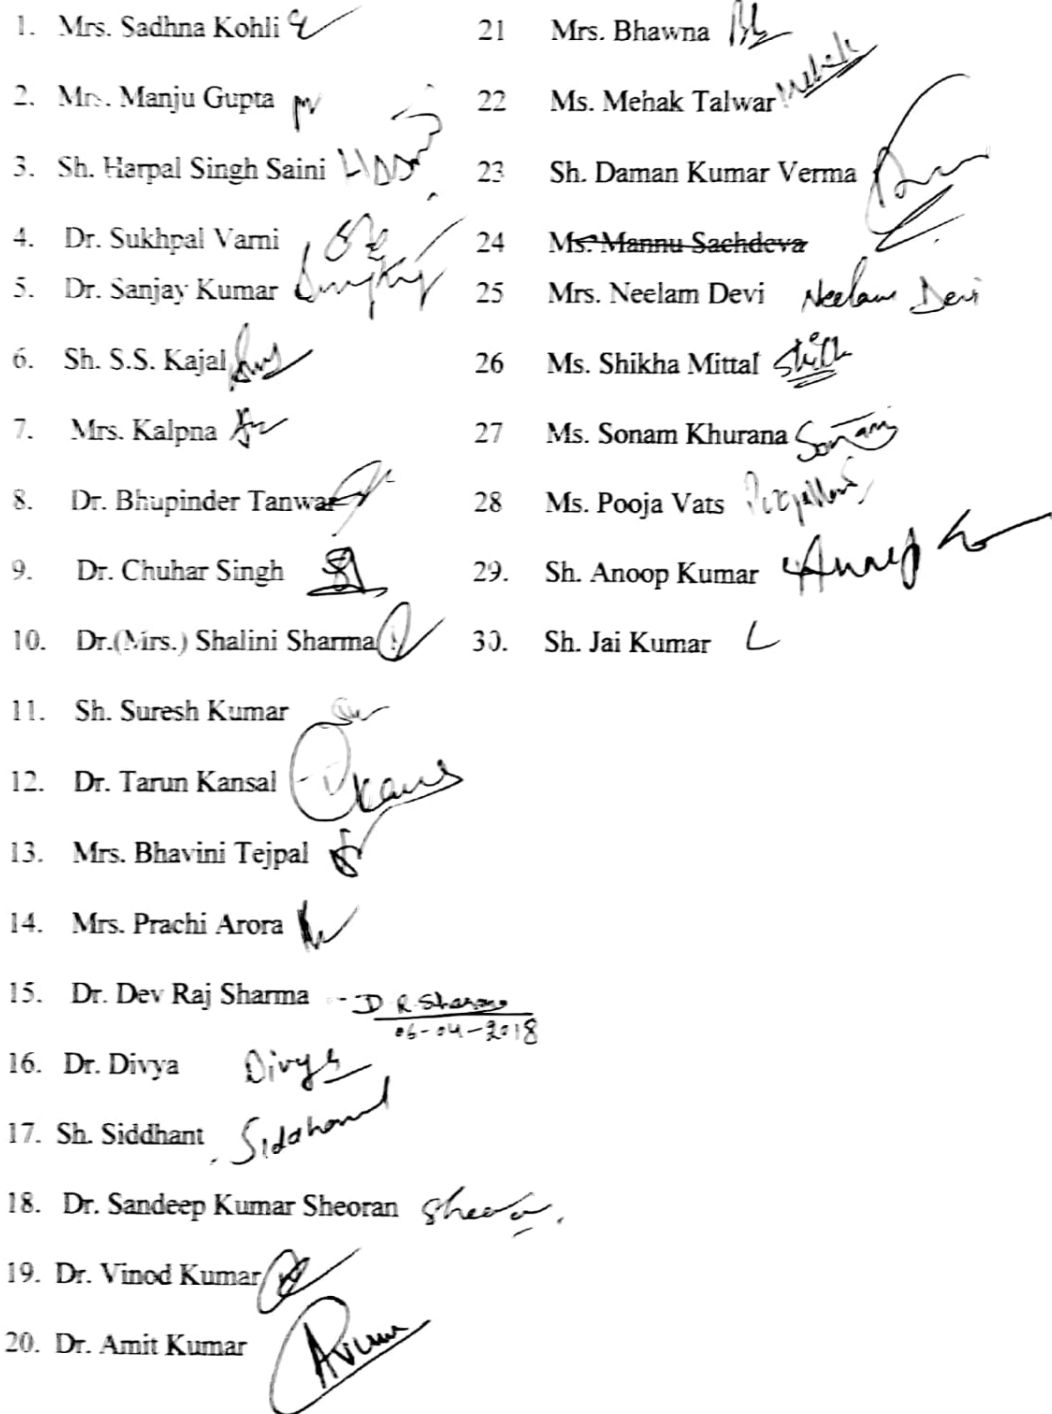 1. Mrs. Sadhna Kohli
2. Mrs. Manju Gupta
3. Sh. Harpal Singh Saini
4. Dr. Sukhpal Varni
5. Dr. Sanjay Kumar
6. Sh. S.S. Kajal
7. Mrs. Kalpna
8. Dr. Bhupinder Tanwar
9. Dr. Chuhar Singh
10. Dr.(Mrs.) Shalini Sharma
11. Sh. Suresh Kumar
12. Dr. Tarun Kansal
13. Mrs. Bhavini Tejpal
14. Mrs. Prachi Arora
15. Dr. Dev Raj Sharma D R Sharma
06-04-2018
16. Dr. Divya Divya
17. Sh. Siddhant
18. Dr. Sandeep Kumar Sheoran
19. Dr. Vinod Kumar
20. Dr. Amit Kumar
21 Mrs. Bhawna
22 Ms. Mehak Talwar Mehak
23 Sh. Daman Kumar Verma
24 Ms. Mannu Sachdeva
25 Mrs. Neelam Devi Neelam Devi
26 Ms. Shikha Mittal
27 Ms. Sonam Khurana Sonam
28 Ms. Pooja Vats
29. Sh. Anoop Kumar
30. Sh. Jai Kumar